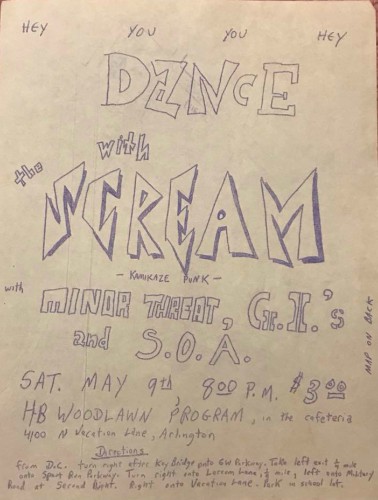 HEY YOU YOU HEY
DANCE
with
the
SCREAM
- KAMIKAZE PUNK -
with
MINOR THREAT, G.I.'s
and S.O.A.
MAP ON BACK
SAT. MAY 9th, 800 P.M. $3.00
HB WOODLAWN PROGRAM, in the cafeteria
4100 N Vacation Lane, Arlington
Directions
From D.C. turn right after Key Bridge onto GW Parkway. Take left exit ¼ mile
onto Spout Run Parkway. Turn right onto Lorcom Lane, ½ mile, left onto Military
Road at Second light. Right onto Vacation Lane. Park in school lot.